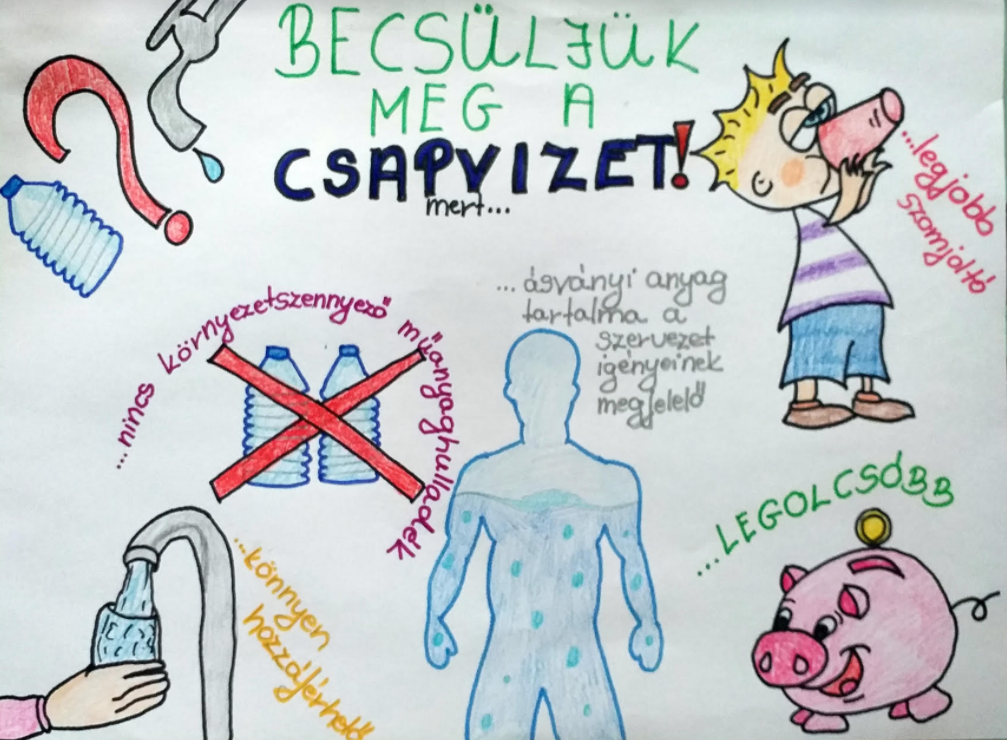 BECSÜLJÜK
MEG A
CSAPVIZET!
mert...
...legjobb
szomjoltó
...ásványi anyag
tartalma a
szervezet
igényeinek
megfelelő
...nincs környezetszennyező műanyaghulladék
...LEGOLCSÓBB
...könnyen
hozzáférhető